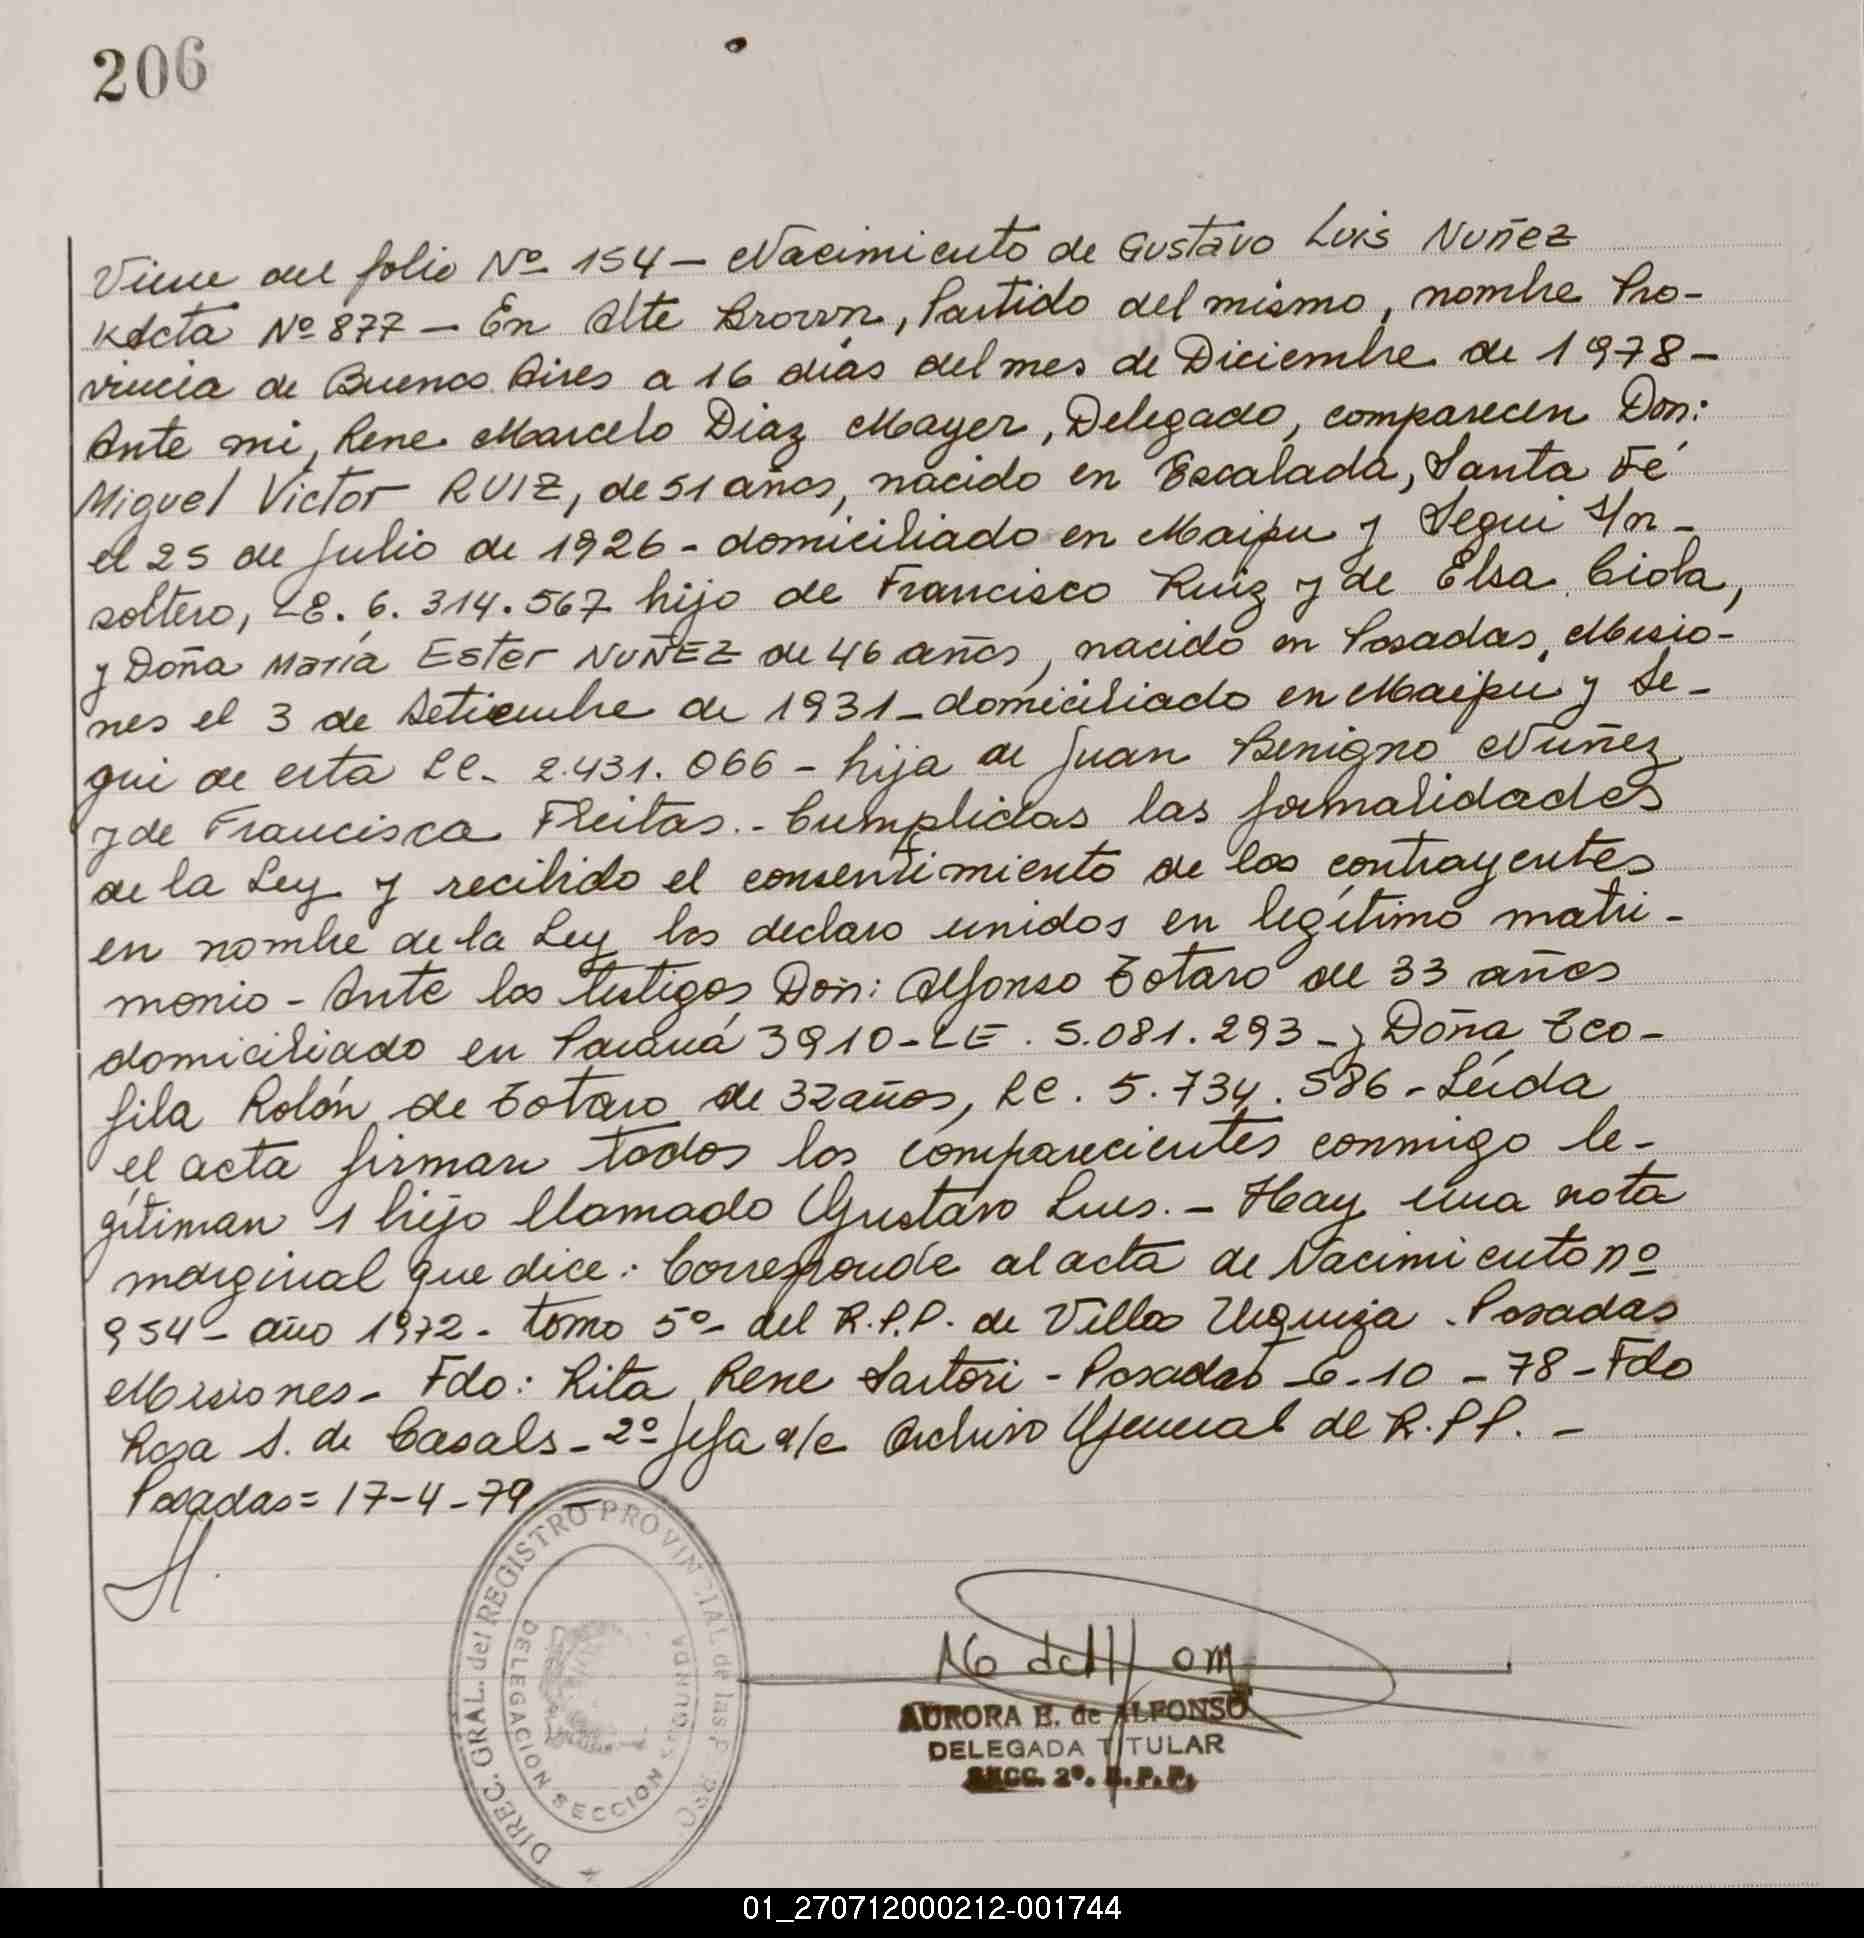 206
Viene del folio Nº 154 - Nacimiento de Gustavo Luis Nuñez
Acta Nº 877 - En Alte Brown, Partido del mismo, nombre Pro-
vincia de Buenos Aires a 16 días del mes de Diciembre de 1978-
Ante mi, Rene Marcelo Diaz Mayer, Delegado, comparecen Don:
Miguel Victor RUIZ, de 51 años, nacido en Escalada, Santa Fé
el 25 de Julio de 1926 - domiciliado en Maipu y Segui s/n -
soltero, LE. 6.314.567 hijo de Francisco Ruiz y de Elsa Ciola,
y Doña María Ester NUÑEZ de 46 años, nacido en Posadas, Misio-
nes el 3 de Setiembre de 1931 - domiciliado en Maipú y Se-
gui de esta LC. 2.431.066 - hija de Juan Benigno Nuñez
y de Francisca Freitas.- Cumplidas las formalidades
de la Ley y recibido el consentimiento de los contrayentes
en nombre de la Ley los declaro unidos en legítimo matri-
monio - Ante los testigos Don: Alfonso Totaro de 33 años
domiciliado en Paraná 3910 - LE. 5.081.293 - y Doña Teo-
fila Rolón de Totaro de 32 años, LC. 5.734.586 - Leída
el acta firman todos los comparecientes conmigo le-
gítiman 1 hijo llamado Gustavo Luis. - Hay una nota
marginal que dice: Corresponde al acta de Nacimiento nº
954 - año 1972 - tomo 5º - del R.P.P. de Villa Urquiza - Posadas
Misiones - Fdo: Rita Rene Sartori - Posadas - 6 - 10 - 78 - Fdo
Rosa S. de Casals - 2º Jefa a/c Archivo General de R.P.P. -
Posadas = 17-4-79 -
DIREC. GRAL. del REGISTRO PROVINCIAL de las P
DELEGACION SECCION SEGUNDA
AURORA E. de ALFONSO
DELEGADA TITULAR
SECC. 2º. R.P.P.
01_270712000212-001744